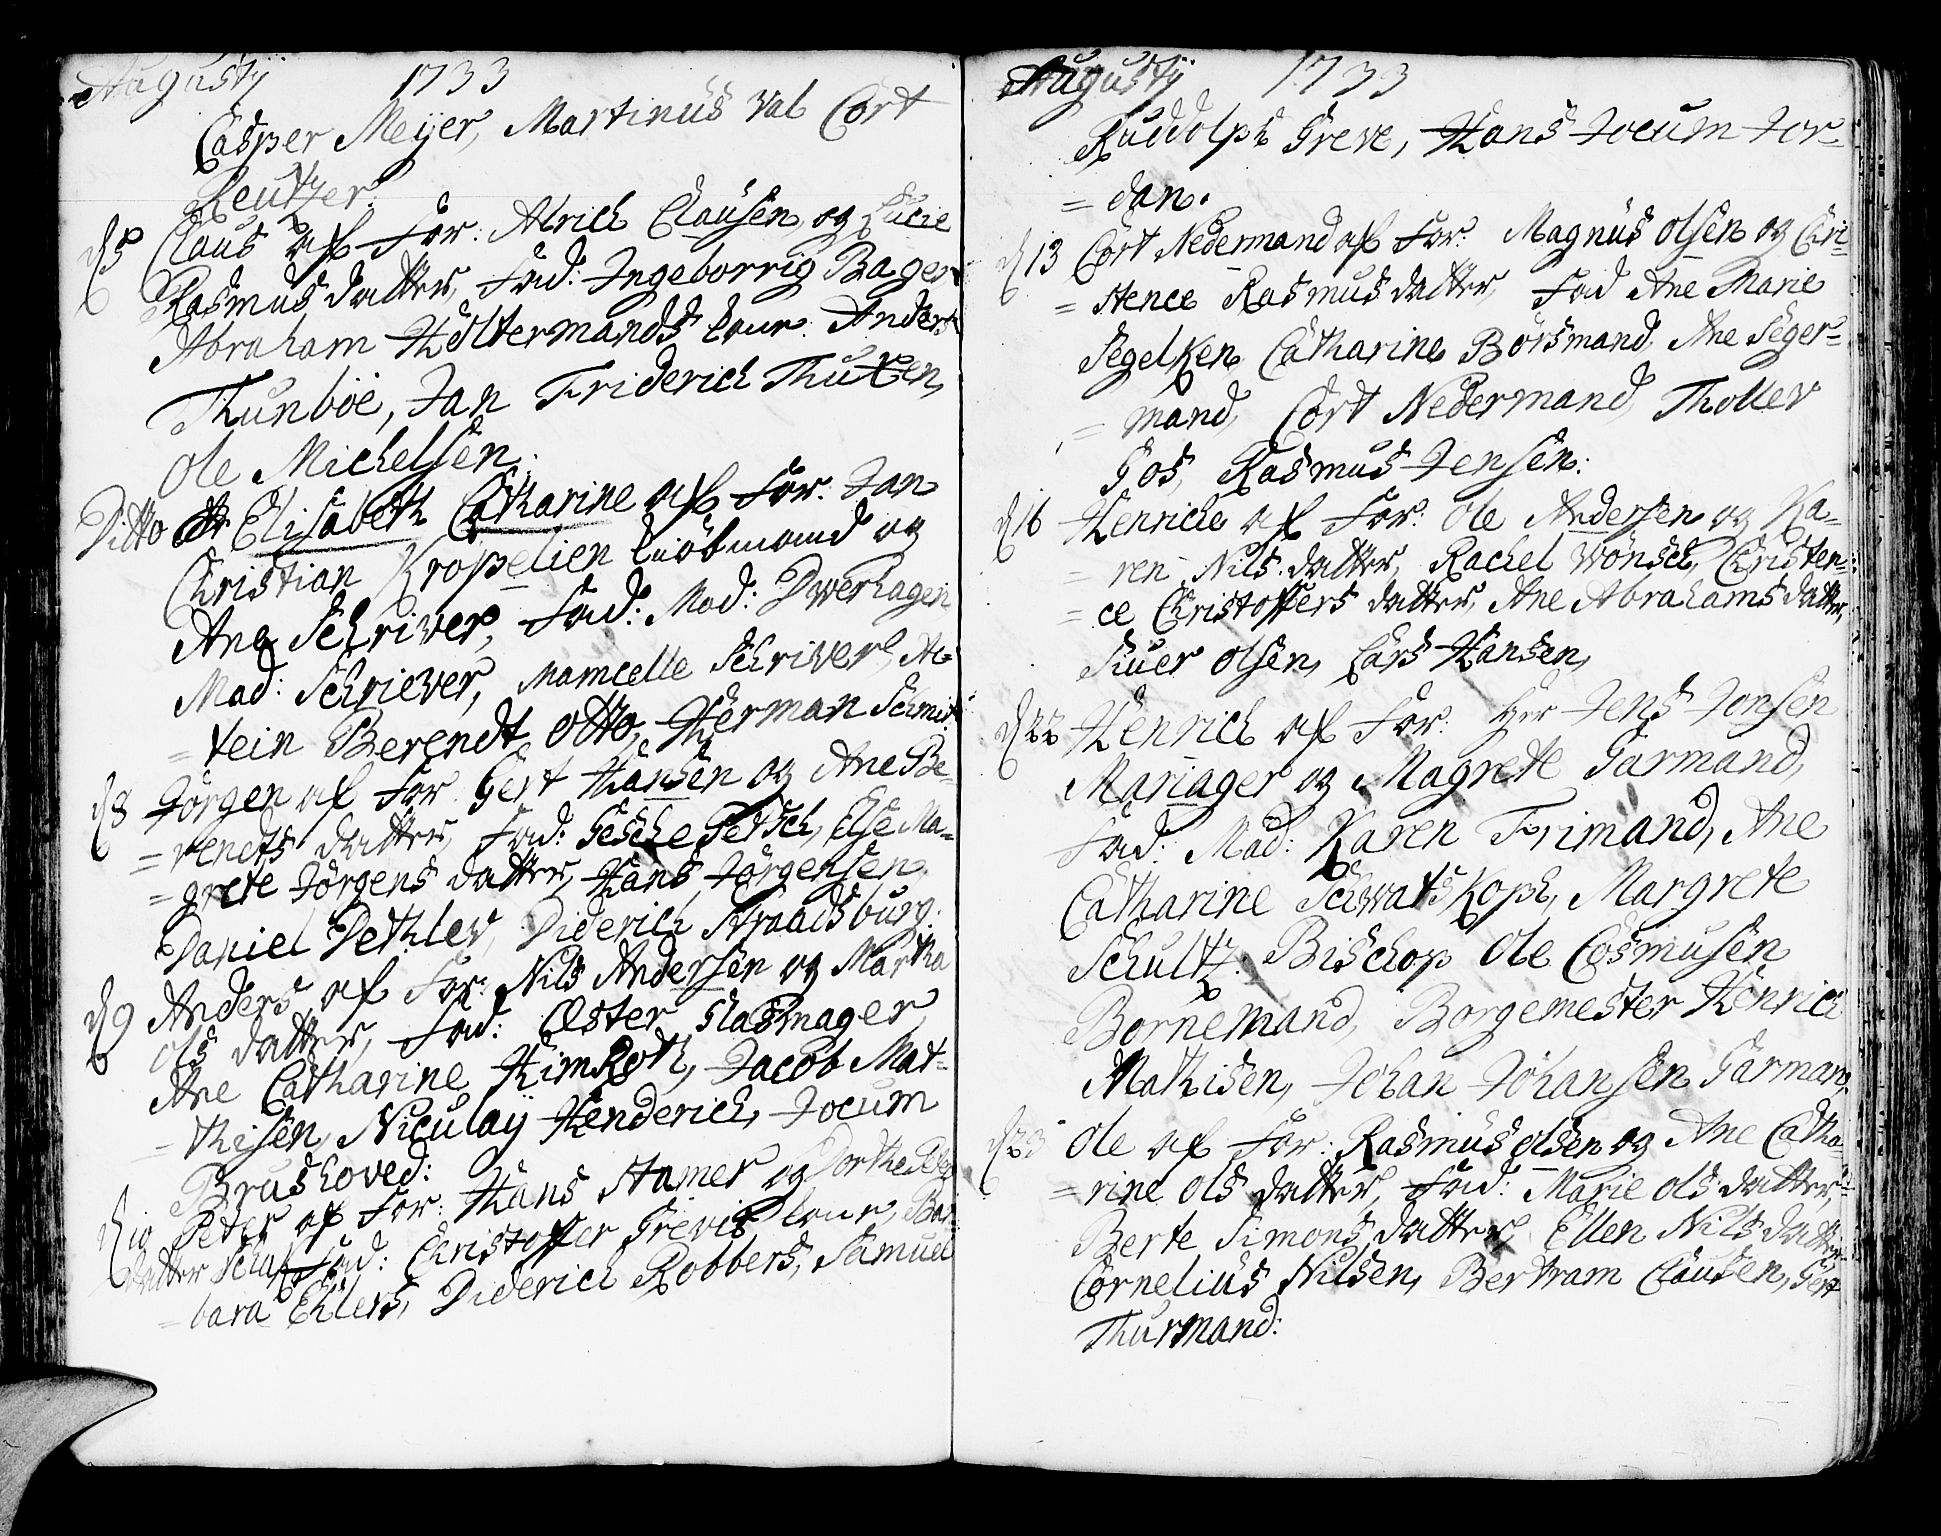 Augustÿ 1733
Casper Meÿer, Martinus Val Cort
Reutzer.
d 5 Claus af For: Alrich Clausen, og Lucie
Rasmusdatter, Fad: Ingeborrig Bager
Abraham Höltermands Enur: Anders
Thunböe, Jan Friderich Thuxen,
Ole Michelsen.
Ditto Elisabeth Catharine af For: Jan
Christian Kropelien kiöbmand og
Ane Schriver, Fad: Mad: Dwerhagen
Mad: Schriever, Mamcelle Schriver, Au
= tein Berendt Otto, Herman Schmit
d 8 Jörgen af For Gert Hansen og Ane Be-
= rendts datter, Fad: Gesche Petsch, Else Ma-
= grete Jörgens datter, Hans Jörgensen,
Daniel Dethlev, Diderich Straadsburg:
d 9 Anders af For: Nils Andersen og Martha
Ols datter, Fad: Ester Glasmager,
Ane Catharine Himkoth, Jacob Mat-
= thisen, Niculaÿ Henderich, Jocum
Brushoved:
d 10 Peter af For: Hans Stamer og Dorthe
datter Fad: Christoffer Grevis Enur, Bar-
= bara Ehlers, Diderich Robbers, Samuel
Augustÿ 1733
Ruddolph Greve, Hans Jocum Jor-
= dan.
d 13 Cort Nedermand af For: Magnus Olsen og Chri-
= stence Rasmusdatter, Fad Ane Marie
Segelken, Catharine Borsmand, Ane Seger-
= mand, Cort Nedermand, Thollev
Gos, Rasmus Jensen:
d 16 Henriche af For: Ole Andersen og Ka-
= ren Nils datter, Rachel Wönsch, Christen-
= ce Christoffers datter, Ane Abrahams datter,
Siuer Olsen, Lars Hansen,
d 22 Henrich af For: Hr Jens Jonsen
Mariager og Magrete Garmand,
Fad: Mad: Karen Frimand, Ane
Catharine Schwatskoph, Margrete
Schultz: Bischop Ole Cosmusen
Bornemand, Borgemester Henrich
Mathisen, Johan Johansen Garmand,
d 23 Ole af For: Rasmus Olsen og Ane Catha-
= rine Ols datter, Fad: Marie Ols datter,
Berte Simons datter, Ellen Nils datter
Cornelius Nilsen, Bertram Clausen, Gert
Thurmand: